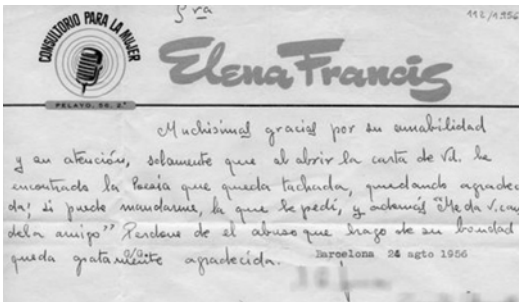 Sra
112/1956
CONSULTORIO PARA LA MUJER
Elena Francis
PELAYO, 56, 2.º
Muchisimas gracias por su amabilidad
y su atención, solamente que al abrir la carta de Vd. he
encontrado la Poesia que queda tachada, quedando agradeci
da; si puede mandarme, la que le pedí, y además "Me da V. 
dela amigo" Perdone de el abuso que hago de su bondad
queda gratamente agradecida. Barcelona 24 agto 1956